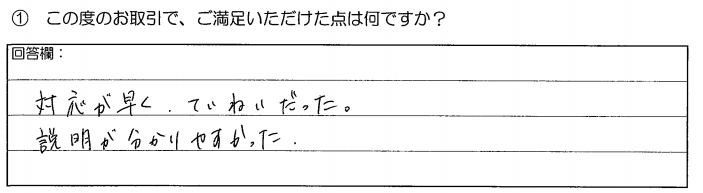 ① この度のお取引で、ご満足いただけた点は何ですか？
回答欄：
対応が早く．ていねいだった。
説明が分かりやすかった．